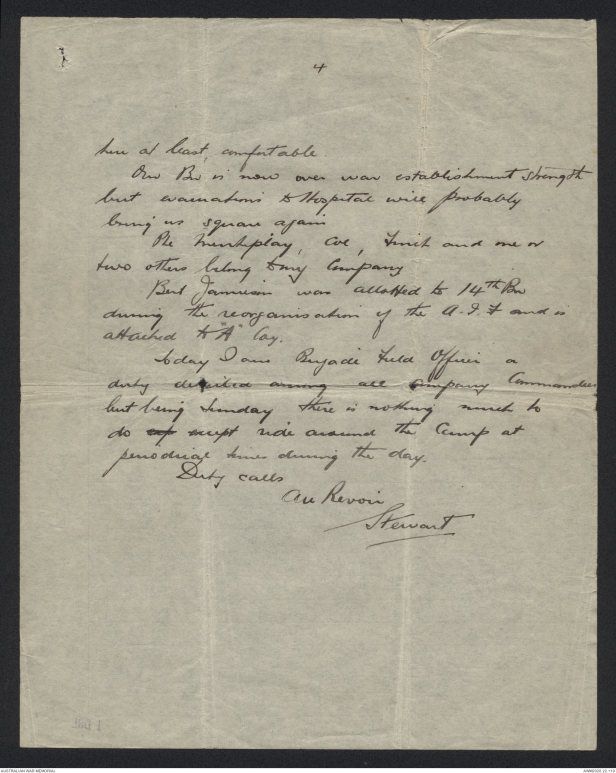 4
here at least, comfortable.
Our Bn is now over war establishment strength
but evacuations to Hospital will probably
bring us square again
Pte , Coe, Finch and one or
two others belong to my Company
Bert Jamieson was allotted to 14th Bn
during the reorganisation of the A.I.F and is
attached to "A" Coy.
Today I am Brigade Field Officer a
duty detailed among all Company Commanders
but being Sunday there is nothing much to
do except ride around the Camp at
periodical times during the day.
Duty calls
Au Revoir
Stewart
AUSTRALIAN WAR MEMORIAL